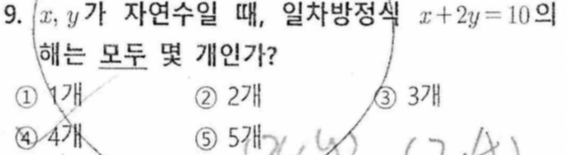 9. x, y가 자연수일 때, 일차방정식 x+2y=10의
해는 모두 몇 개인가?
① 1개 ② 2개 ③ 3개
④ 4개 ⑤ 5개